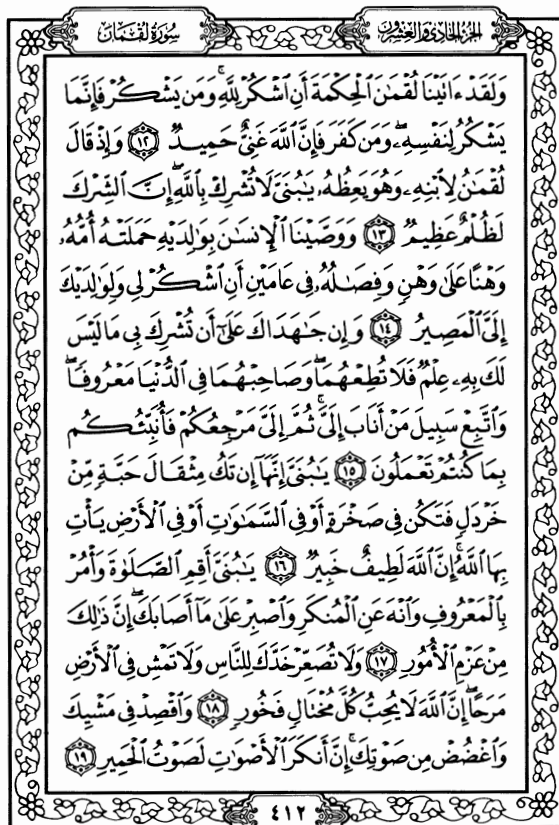 سُورَةُ لُقْمَانَ
الجُزْءُ الحَادِي وَالعِشْرُونَ
وَلَقَدْ ءَاتَيْنَا لُقْمَٰنَ ٱلْحِكْمَةَ أَنِ ٱشْكُرْ لِلَّهِ ۚ وَمَن يَشْكُرْ فَإِنَّمَا
يَشْكُرُ لِنَفْسِهِۦ ۖ وَمَن كَفَرَ فَإِنَّ ٱللَّهَ غَنِىٌّ حَمِيدٌ ١٢ وَإِذْ قَالَ
لُقْمَٰنُ لِٱبْنِهِۦ وَهُوَ يَعِظُهُۥ يَٰبُنَىَّ لَا تُشْرِكْ بِٱللَّهِ ۖ إِنَّ ٱلشِّرْكَ
لَظُلْمٌ عَظِيمٌ ١٣ وَوَصَّيْنَا ٱلْإِنسَٰنَ بِوَٰلِدَيْهِ حَمَلَتْهُ أُمُّهُۥ
وَهْنًا عَلَىٰ وَهْنٍ وَفِصَٰلُهُۥ فِى عَامَيْنِ أَنِ ٱشْكُرْ لِى وَلِوَٰلِدَيْكَ
إِلَىَّ ٱلْمَصِيرُ ١٤ وَإِن جَٰهَدَاكَ عَلَىٰٓ أَن تُشْرِكَ بِى مَا لَيْسَ
لَكَ بِهِۦ عِلْمٌ فَلَا تُطِعْهُمَا ۖ وَصَاحِبْهُمَا فِى ٱلدُّنْيَا مَعْرُوفًا ۖ
وَٱتَّبِعْ سَبِيلَ مَنْ أَنَابَ إِلَىَّ ۚ ثُمَّ إِلَىَّ مَرْجِعُكُمْ فَأُنَبِّئُكُم
بِمَا كُنتُمْ تَعْمَلُونَ ١٥ يَٰبُنَىَّ إِنَّهَآ إِن تَكُ مِثْقَالَ حَبَّةٍ مِّنْ
خَرْدَلٍ فَتَكُن فِى صَخْرَةٍ أَوْ فِى ٱلسَّمَٰوَٰتِ أَوْ فِى ٱلْأَرْضِ يَأْتِ
بِهَا ٱللَّهُ ۚ إِنَّ ٱللَّهَ لَطِيفٌ خَبِيرٌ ١٦ يَٰبُنَىَّ أَقِمِ ٱلصَّلَوٰةَ وَأْمُرْ
بِٱلْمَعْرُوفِ وَٱنْهَ عَنِ ٱلْمُنكَرِ وَٱصْبِرْ عَلَىٰ مَآ أَصَابَكَ ۖ إِنَّ ذَٰلِكَ
مِنْ عَزْمِ ٱلْأُمُورِ ١٧ وَلَا تُصَعِّرْ خَدَّكَ لِلنَّاسِ وَلَا تَمْشِ فِى ٱلْأَرْضِ
مَرَحًا ۖ إِنَّ ٱللَّهَ لَا يُحِبُّ كُلَّ مُخْتَالٍ فَخُورٍ ١٨ وَٱقْصِدْ فِى مَشْيِكَ
وَٱغْضُضْ مِن صَوْتِكَ ۚ إِنَّ أَنكَرَ ٱلْأَصْوَٰتِ لَصَوْتُ ٱلْحَمِيرِ ١٩
٤١٢